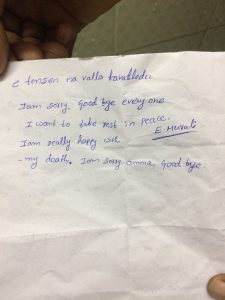 e tension na valla kavatledu
Iam sorry. Good bye every one
I want to take rest in peace.
E. Murali
Iam really happy with
my death. Iam sorry amma, Good bye.